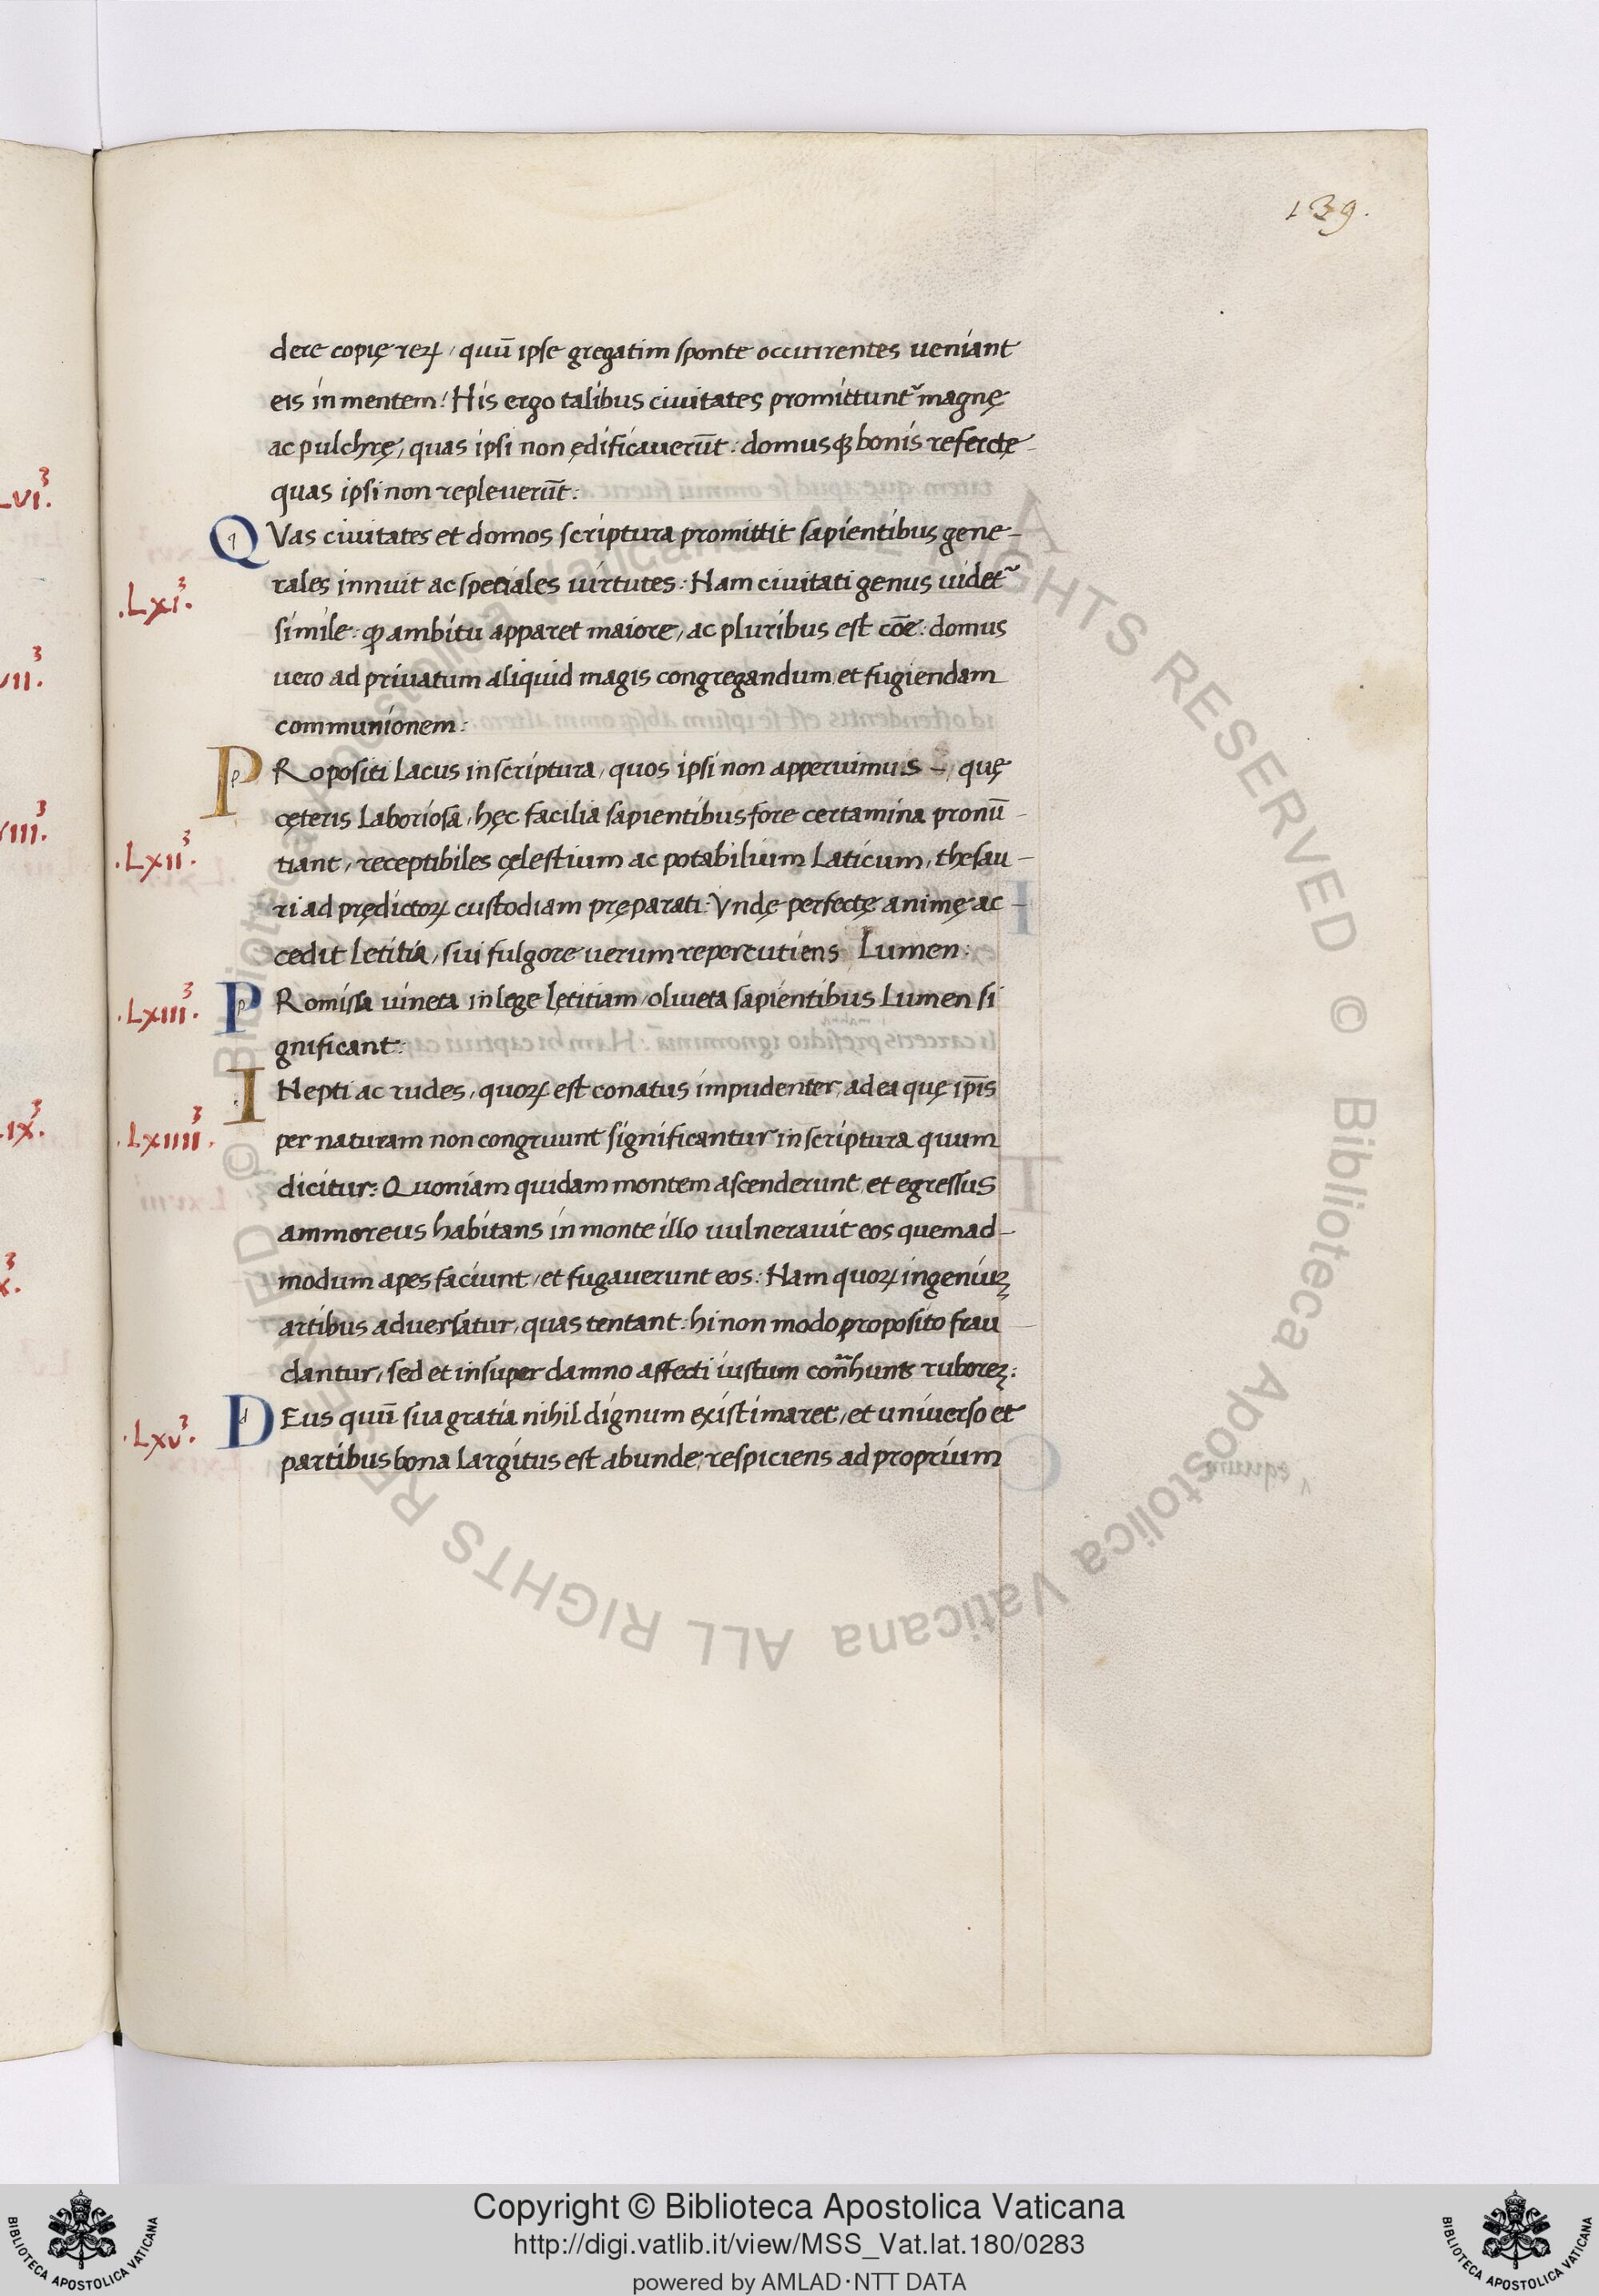 139.
dere copię reꝝ, quū ipse gregatim sponte occurrentes ueniant
eis in mentem! His ergo talibus ciuitates promittuntˀ magnę
ac pulchrę, quas ipsi non ędificauerūt: domusqꝫ bonis refertę
quas ipsi non repleuerūt:
.LXI.³
QVas ciuitates et domos scriptura promittit sapientibus gene-
rales innuit ac speciales uirtutes: Nam ciuitati genus uidetˀ
simile: ꝙ ambitu apparet maiore, ac pluribus est cōe: domus
uero ad priuatum aliquid magis congregandum, et fugiendam
communionem:
.LXII.³
PRopositi lacus in scriptura, quos ipsi non apperuimus -, quę
cęteris laboriosa, hęc facilia sapientibus fore certamina pronū-
tiant, receptibiles cęlestium ac potabilium laticum, thesau-
ri ad prędictoꝝ custodiam pręparati: Vndę perfectę animę ac-
cedit letitia, sui fulgore uerum repercutiens Lumen:
.LXIII.³
PRomissa uineta in lege lętitiam, oliueta sapientibus Lumen si
gnificant:
.LXIIII.³
INepti ac rudes, quoꝝ est conatus impudenter, ad ea quę ip̄is
per naturam non congruunt significantur in scriptura quum
dicitur: Quoniam quidam montem ascenderunt, et egressus
ammoreus habitans in monte illo uulnerauit eos quemad-
modum apes faciunt, et fugauerunt eos: Nam quoꝝ ingeniuꝫ
artibus aduersatur, quas tentant: hi non modo proposito frau-
dantur, sed et insuper damno affecti iustum con̄hunt ruboreꝫ:
.LXV.³
DEus quū sua gratia nihil dignum existimaret, et uniuerso et
partibus bona largitus est abunde, respiciens ad proprium
LVI.³
VII.³
VIII.³
LIX.³
X.³
© Biblioteca Apostolica Vaticana ALL RIGHTS RESERVED © Biblioteca Apostolica Vaticana ALL RIGHTS RESERVED
Copyright © Biblioteca Apostolica Vaticana
http://digi.vatlib.it/view/MSS_Vat.lat.180/0283
powered by AMLAD·NTT DATA
BIBLIOTECA APOSTOLICA VATICANA
BIBLIOTECA APOSTOLICA VATICANA